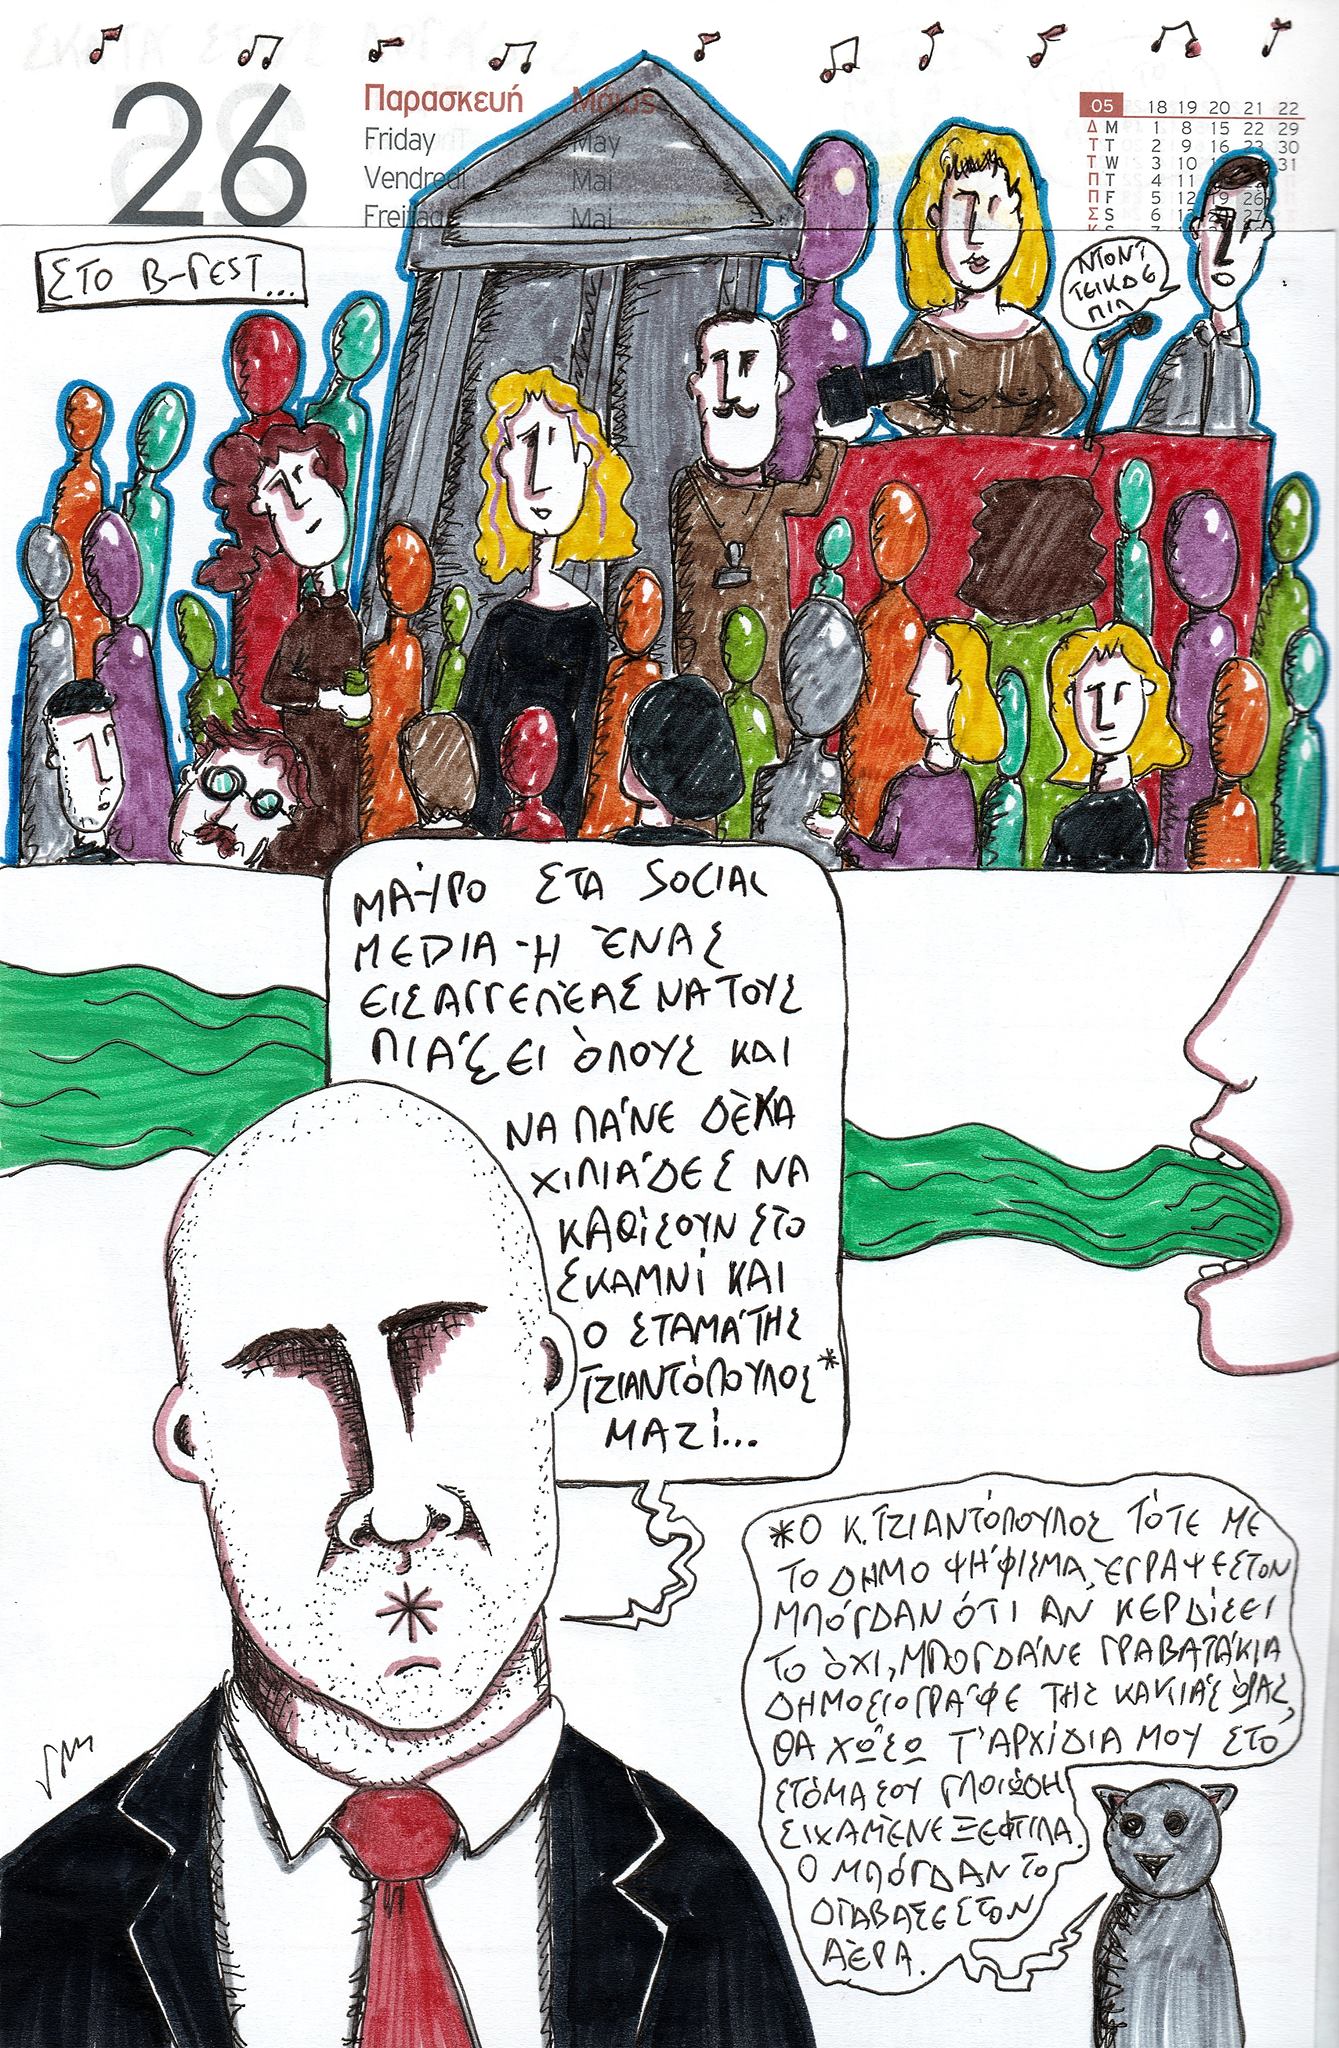 26
Παρασκευή Μάιος
Friday May
Vendredi Mai
Freitag Mai
05 18 19 20 21 22
Δ M 1 8 15 22 29
Τ T 2 9 16 23 30
Τ W 3 10 31
Π T 4 11
Π F 5 12 19 26
Σ S 6 27
ΣΤΟ B-FEST...
ΝΤΟΝΤ
ΤΕΙΚ ΔΕ
ΠΙΛ
ΜΑΎΡΟ ΣΤΑ SOCIAL
MEDIA-Ή ΈΝΑΣ
ΕΙΣΑΓΓΕΛΈΑΣ ΝΑ ΤΟΥΣ
ΠΙΆΣΕΙ ΌΛΟΥΣ ΚΑΙ
ΝΑ ΠΆΝΕ ΔΈΚΑ
ΧΙΛΙΆΔΕΣ ΝΑ
ΚΑΘΊΣΟΥΝ ΣΤΟ
ΣΚΑΜΝΊ ΚΑΙ
Ο ΣΤΑΜΆΤΗΣ
ΤΖΙΑΝΤΌΠΟΥΛΟΣ*
ΜΑΖΊ...
*Ο Κ. ΤΖΙΑΝΤΌΠΟΥΛΟΣ ΤΌΤΕ ΜΕ
ΤΟ ΔΗΜΟΨΉΦΙΣΜΑ, ΈΓΡΑΨΕ ΣΤΟΝ
ΜΠΌΓΔΑΝ ΌΤΙ ΑΝ ΚΕΡΔΊΣΕΙ
ΤΟ ΌΧΙ, ΜΠΟΓΔΆΝΕ ΓΡΑΒΑΤΆΚΙΑ
ΔΗΜΟΣΙΟΓΡΆΦΕ ΤΗΣ ΚΑΚΙΆΣ ΏΡΑΣ,
ΘΑ ΧΏΣΩ Τ'ΑΡΧΊΔΙΑ ΜΟΥ ΣΤΟ
ΣΤΌΜΑ ΣΟΥ ΓΛΟΙΏΔΗ
ΣΙΧΑΜΈΝΕ ΞΕΦΤΊΛΑ.
Ο ΜΠΌΓΔΑΝ ΤΟ
ΔΙΆΒΑΣΕ ΣΤΟΝ
ΑΈΡΑ.